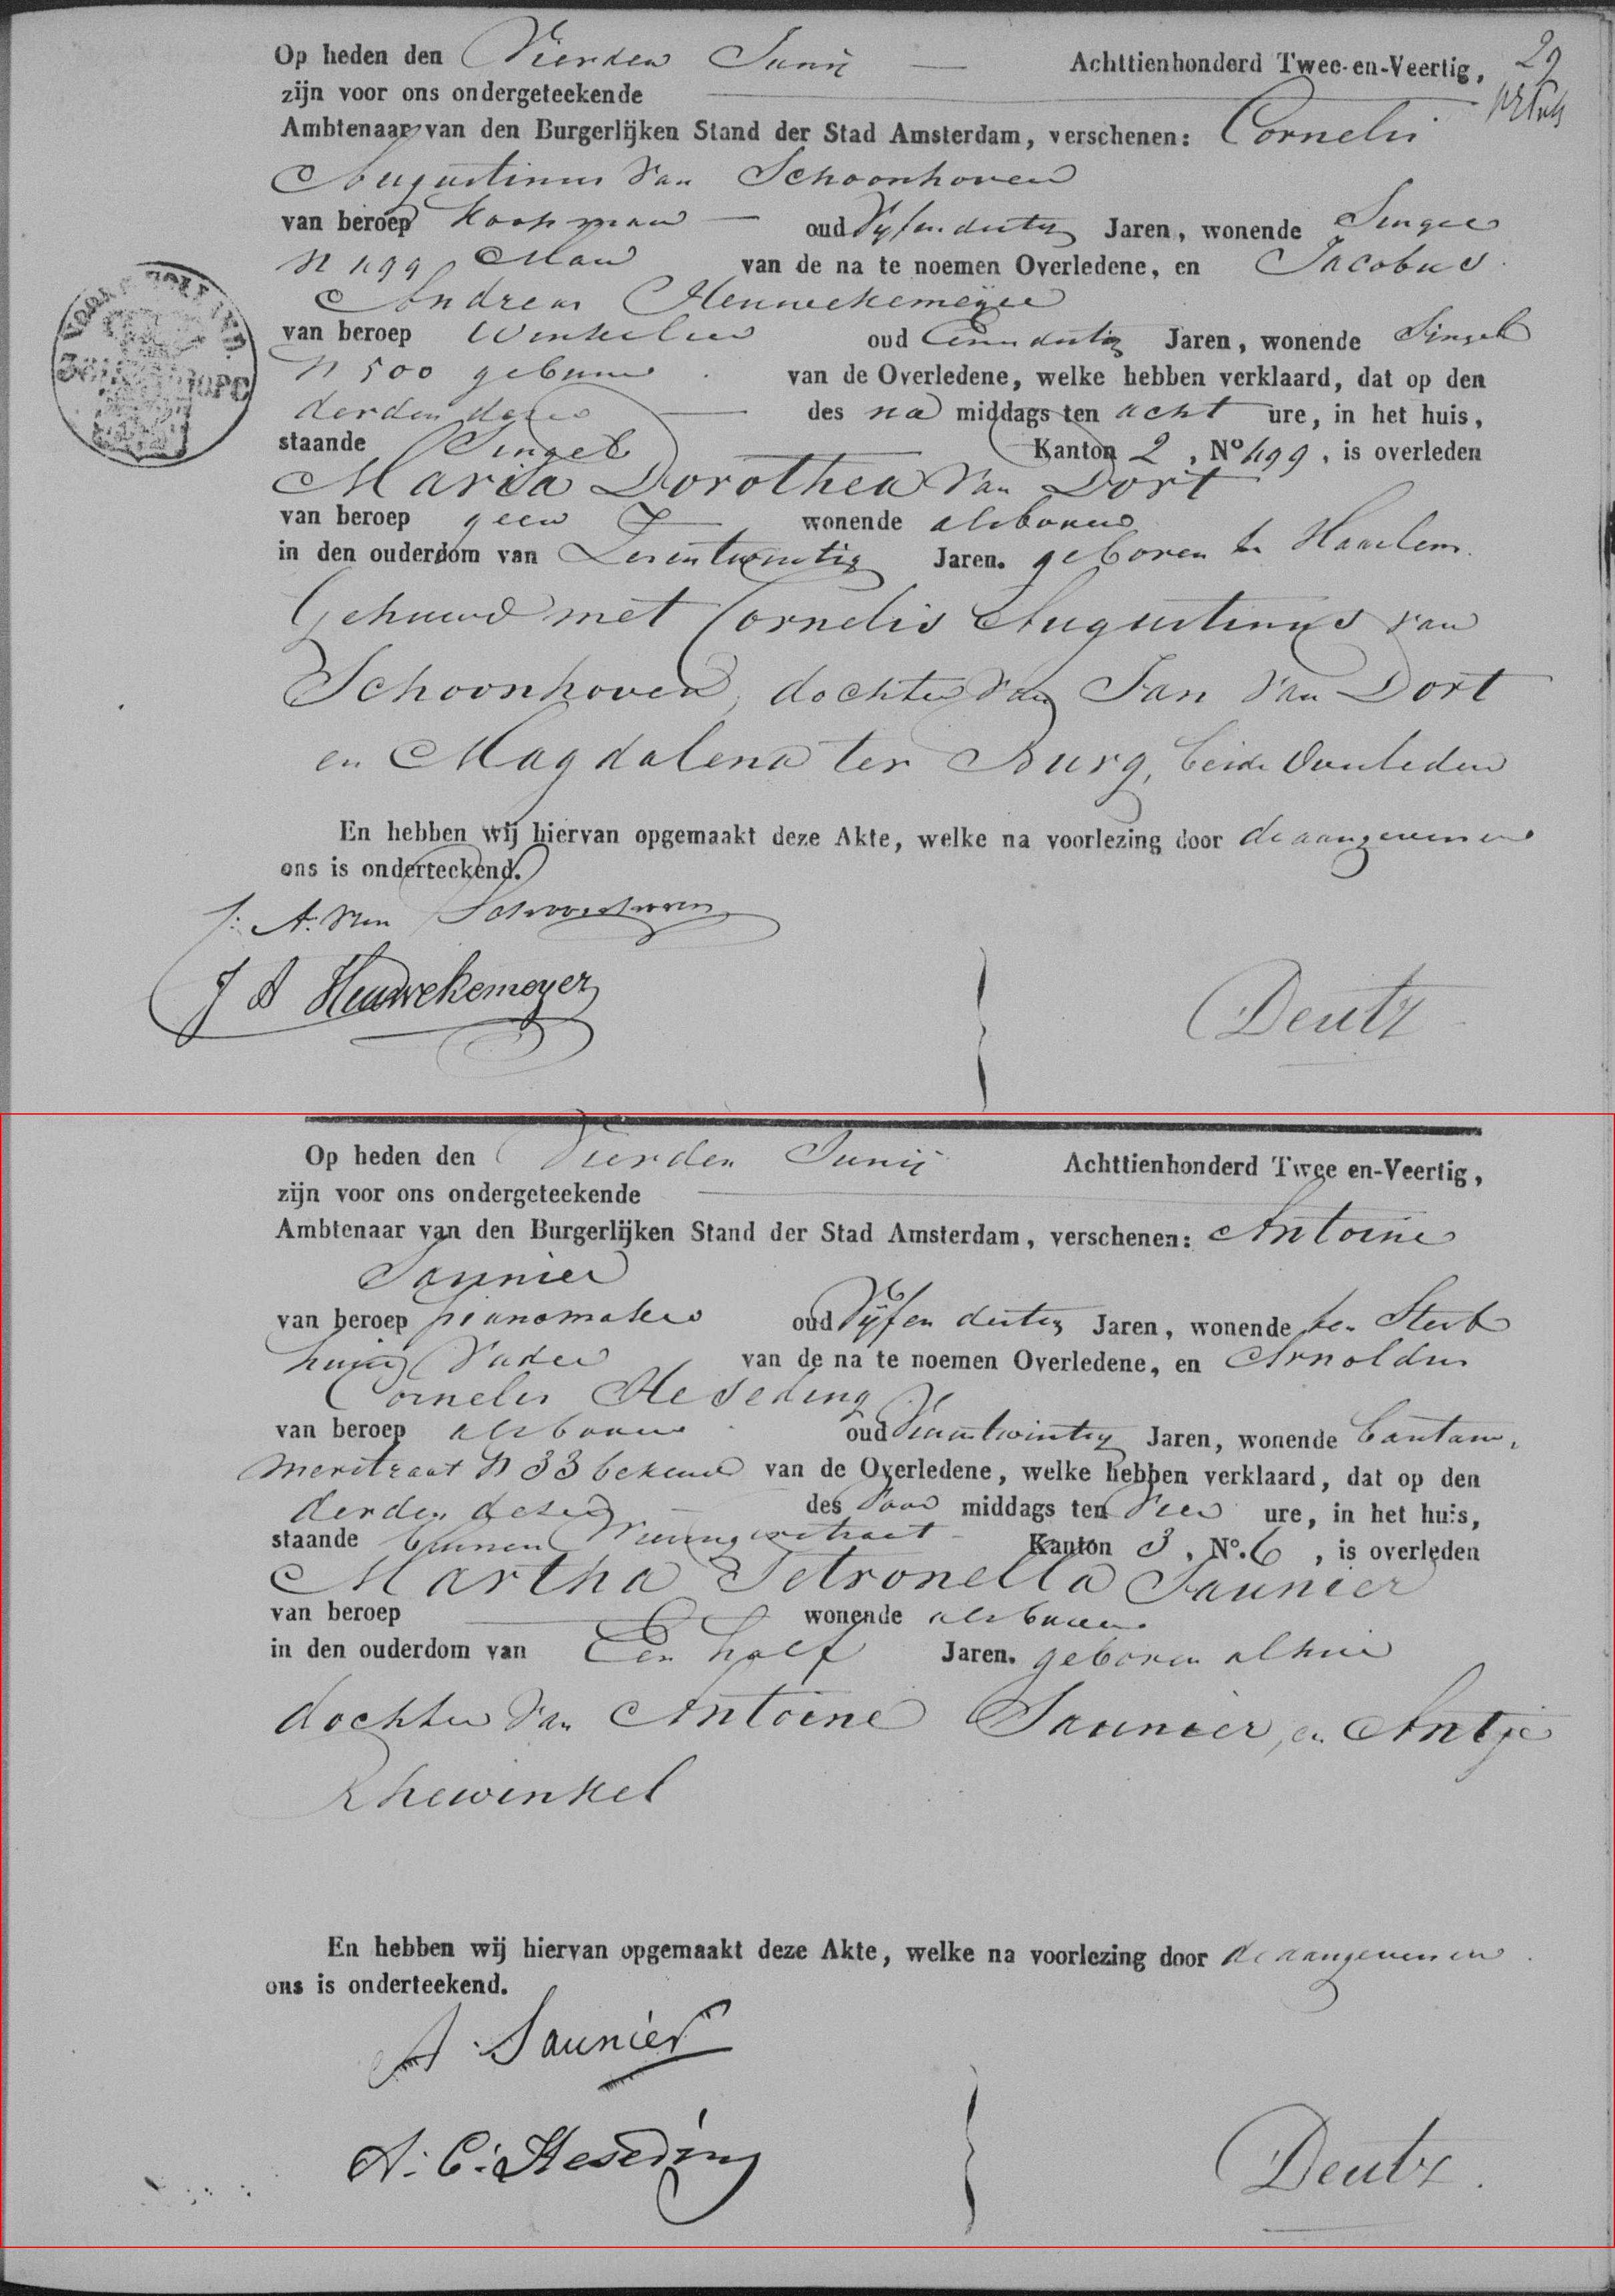 Op heden den Vierden Junij — Achttienhonderd Twee-en-Veertig, 29
zijn voor ons ondergeteekende
Ambtenaar van den Burgerlijken Stand der Stad Amsterdam, verschenen: Cornelis
Augustinus van Schoonhoven
van beroep Koopman — oud Vyfendertig Jaren, wonende Singel
N 499 Man van de na te noemen Overledene, en Jacobus
Andreas Heuwekemeijer
van beroep Winkelier oud Eenendertig Jaren, wonende Singel
N 500 gebuur van de Overledene, welke hebben verklaard, dat op den
derden dezer — des na middags ten acht ure, in het huis,
staande Singel Kanton 2, No 499, is overleden
Maria Dorothea van Dort
van beroep geen wonende alsboven
in den ouderdom van Zesentwintig Jaren. geboren te Haarlem.
Gehuwd met Cornelis Augustinus van
Schoonhoven, dochter van Jan van Dort
en Magdalena ter Burg, beide Overleden
En hebben wij hiervan opgemaakt deze Akte, welke na voorlezing door de aangevers en
ons is onderteekend.
A. van Schoonhoven
J A Heuwekemeyer
Deutz
Op heden den Vierden Junij Achttienhonderd Twee en-Veertig,
zijn voor ons ondergeteekende
Ambtenaar van den Burgerlijken Stand der Stad Amsterdam, verschenen: Antoine
Saunier
van beroep pianomaker oud Vijfendertig Jaren, wonende ten Sterf
huize Vader van de na te noemen Overledene, en Arnoldus
Cornelis Heseding
van beroep alsboven oud Jaren, wonende
N 33 bekende van de Overledene, welke hebben verklaard, dat op den
derden dezer — des voor middags ten vier ure, in het huis,
staande binnen Vieringerstraat Kanton 3, No. 6, is overleden
Martha Petronella Saunier
van beroep wonende alsboven
in den ouderdom van Een half Jaren. geboren alhier
dochter van Antoine Saunier, en Antje
Rhewinkel
En hebben wij hiervan opgemaakt deze Akte, welke na voorlezing door de aangevers en
ons is onderteekend.
A. Saunier
A. C. Heseding
Deutz.